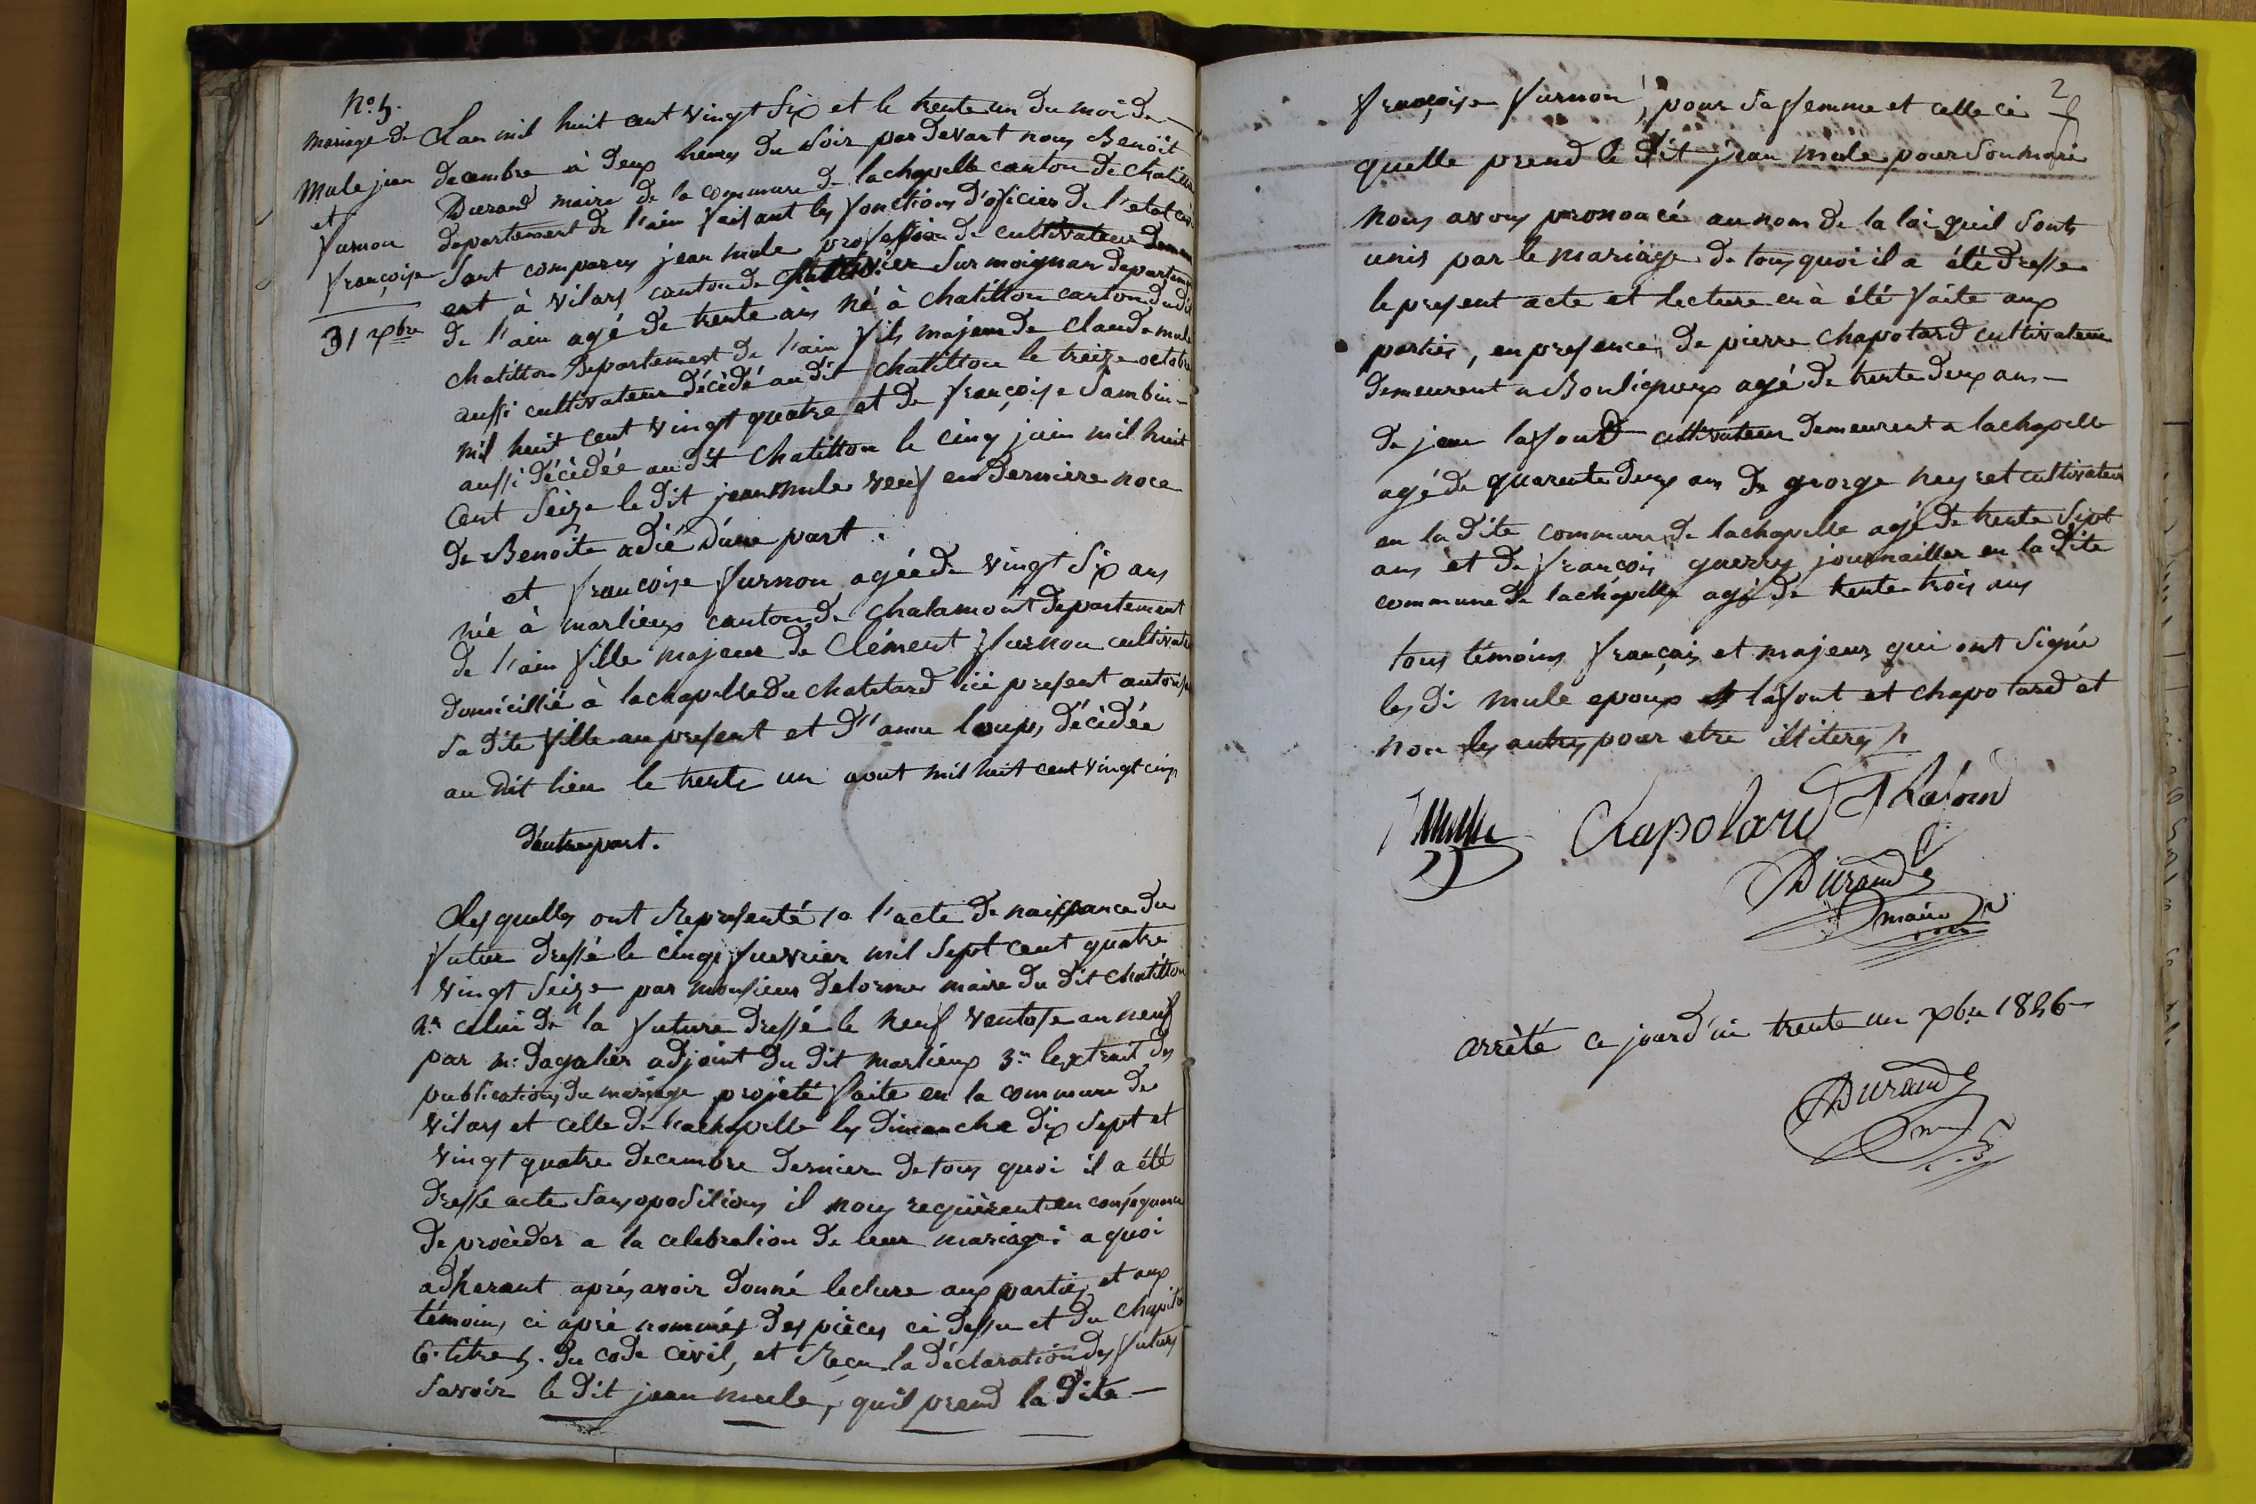 No. 5.
mariage de
Mule jean
et
Furnon
françoise
31 xbre
L'an mil huit cent vingt six et le trente un du moi de
decembre à deux heures du soir par devant nous Benoît
Durand maire de la commune de lachapelle canton de chatillon
departement de l'ain faisant les fonctions d'oficier de l'etat civil
sont comparus jean mule profession de cultivateur
à vilars canton de sur moignan departement
de l'ain agé de trente ans né à chatillon canton du dit
chatillon departement de l'ain fils majeur de claude mule
aussi cultivateur décèdé au dit chatillon le treize octobre
mil huit cent vingt quatre et de françoise Sambin
aussi décèdée au dit chatillon le cinq juin mil huit
cent seize le dit jean mule veuf en derniere noce
de Benoite adié d'une part.
et françoise furnon agée de vingt six ans
née à marlieux canton de chalamont departement
de l'ain fille majeur de Clément furnon cultivateur
domicillié à lachapelle du chatelard ici present autorisant
sa dite fille au present et d'anne loup, décèdée
au dit lieu le trente un aout mil huit cent vingt cinq
d'autre part.
Lesquelles ont representé 1o l'acte de naissance du
futur dressé le cinq fuevrier mil sept cent quatre
vingt seize par monsieur delorme maire du dit chatillon
2o celui de la future dressé le neuf ventose an neuf
par mr. dagalier adjoint du dit marlieux 3o lextrait des
publications du mariage projeté faite en la commune de
vilars et celle de lachapelle les dimanche dix sept et
vingt quatre decembre dernier de tous quoi il a été
dressé acte sans opositions il nous requièrent en conséquence
de procèder a la celebration de leur mariage; a quoi
adherant après avoir donné lecture aux parties et aux
témoins ci aprè nommés des pièces ci dessu et du chapitre
6. titre 5. du code civil, et reçu la déclaration des futurs
savoir le dit jean mule, qu'il prend la dite
2
françoise furnon, pour sa femme et celle ci
quelle prend le dit jean mule pour son mari
nous avons prononcé au nom de la loi quil sonts
unis par le mariage de tous quoi il a été dressé
le present acte et lecture en à été faite aux
parties, en presence de pierre chapotard cultivateur
demeurent a Bouligneux agé de trente deux ans
de jean lafont cultivateur demeurent a lachapelle
agé de quarente deux ans de george neyret cultivateur
en la dite commune de lachapelle agé de trente sept
ans et de françois guerry journailler en la dite
commune de lachapelle agé de trente trois ans
tous témoins français et majeurs qui ont signé
les di mule epoux lafont et chapotard et
non les autres pour etre illiteres /.
Mulle Chapotard Lafond
Durand
maire
arrêté ce jourd'ui trente un xbre 1826
Durand